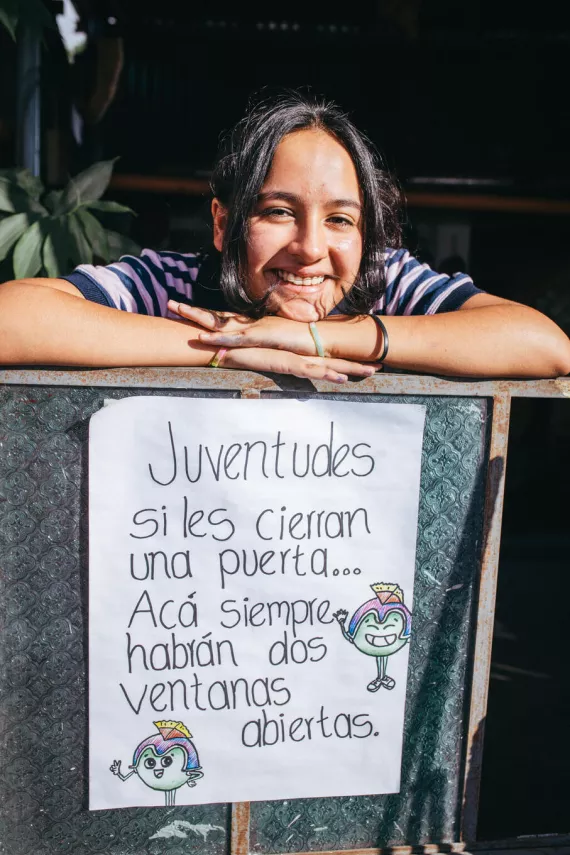 Juventudes
si les cierran
una puerta...
Acá siempre
habrán dos
ventanas
abiertas.